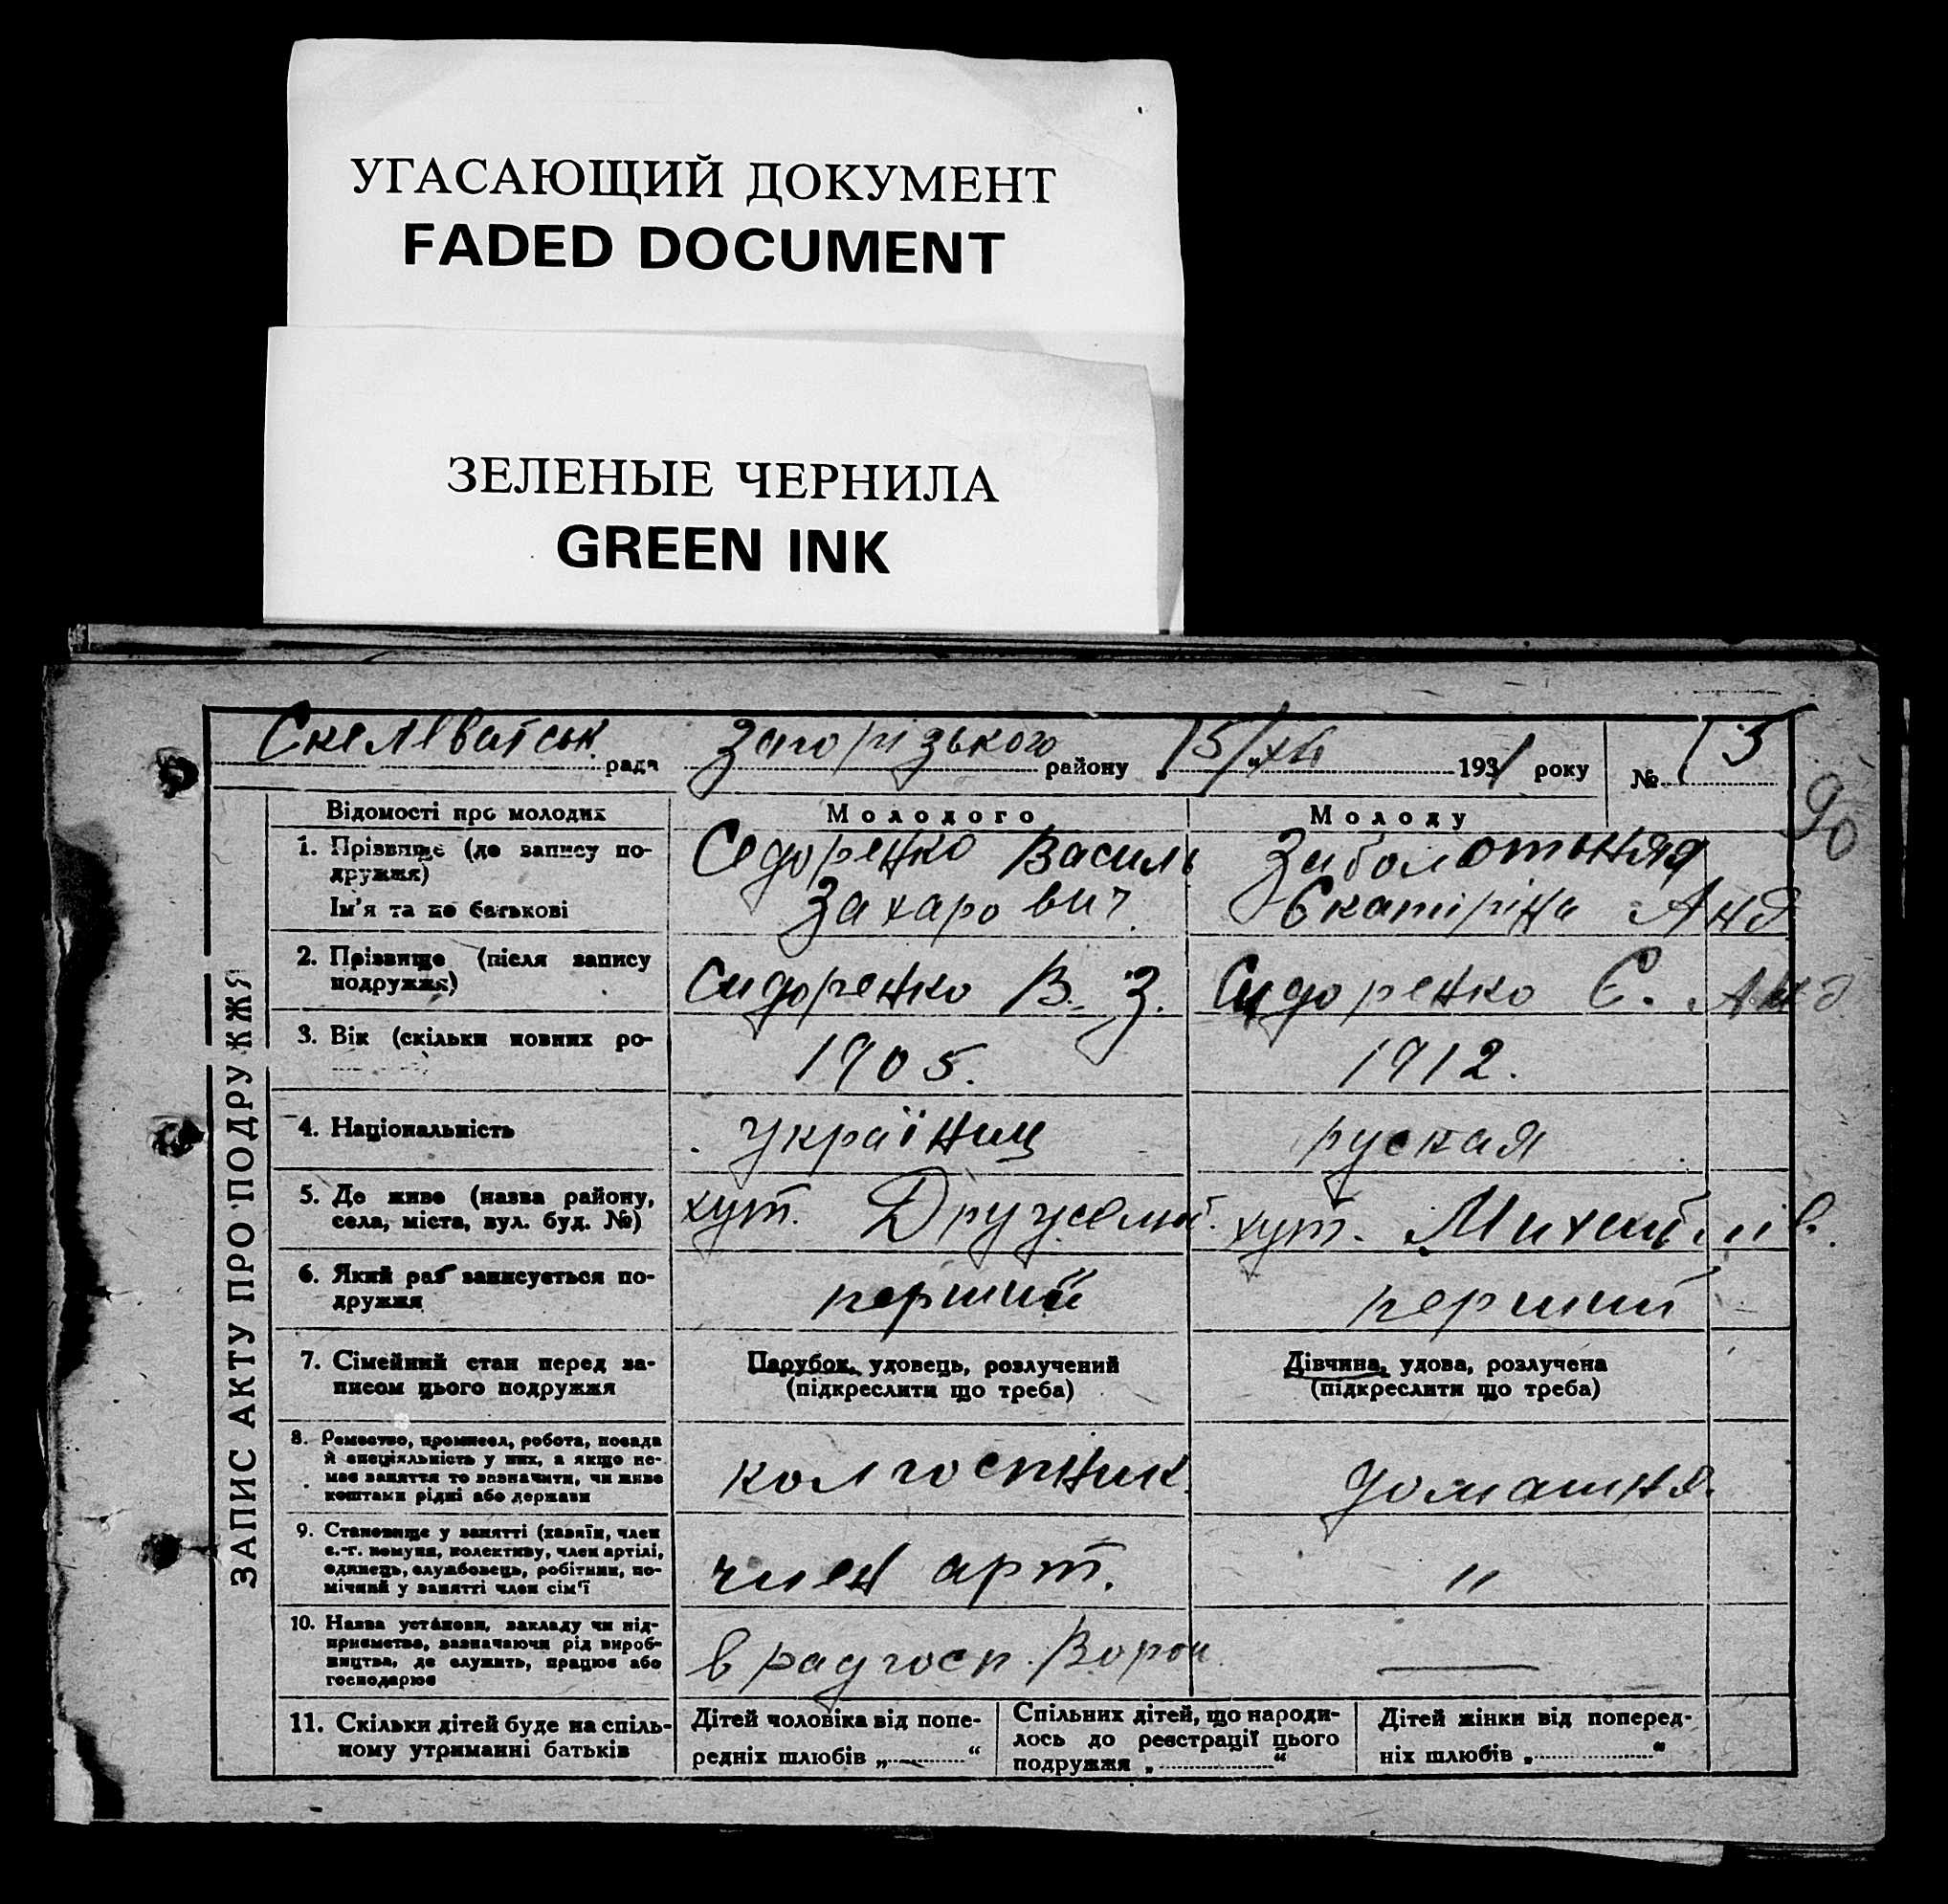 УГАСАЮЩИЙ ДОКУМЕНТ
FADED DOCUMENT
ЗЕЛЕНЫЕ ЧЕРНИЛА
GREEN INK
рада Запорізького району 15/ХІІ 1931 року № 15
90
ЗАПИС АКТУ ПРО ПОДРУЖЖЯ
Відомості про молодих
Молодого
Молоду
1. Прізвище (до запису по-
дружжя)
Ім'я та по батькові
Седоренко Василь
Захарович
Заболотьняя
Єкатіріна Анд
2. Прізвище (після запису
подружжя)
Сидоренко В. З.
Сидоренко Є. Анд
3. Вік (скільки повних ро-
1905.
1912.
4. Національність
українец
руская
5. Де живе (назва району,
села, міста, вул. буд. №)
хут.
хут. Михайлів.
6. Який раз записується по-
дружжя
перший
перший
7. Сімейний стан перед за-
писом цього подружжя
Парубок, удовець, розлучений
(підкреслити що треба)
Дівчина, удова, розлучена
(підкреслити що треба)
8. Ремество, промисел, робота, посада
й спеціяльність у них, а якщо не-
має заняття то зазначити, чи живе
коштами рідні або держави
колгоспник
домашня.
9. Становище у занятті (хазяїн, член
с.-г. комуни, колективу, член артілі,
одинець, службовець, робітник, по-
мічний у занятті член сім'ї
член арт.
"
10. Назва установи, закладу чи під-
приємства, зазначаючи рід вироб-
ництва, де служить, працює або
господарює
в радгосп.
11. Скільки дітей буде на спіль-
ному утриманні батьків
Дітей чоловіка від попе-
редніх шлюбів „ “
Спільних дітей, що народи-
лось до реєстрації цього
подружжя „ “
Дітей жінки від поперед-
ніх шлюбів „ “